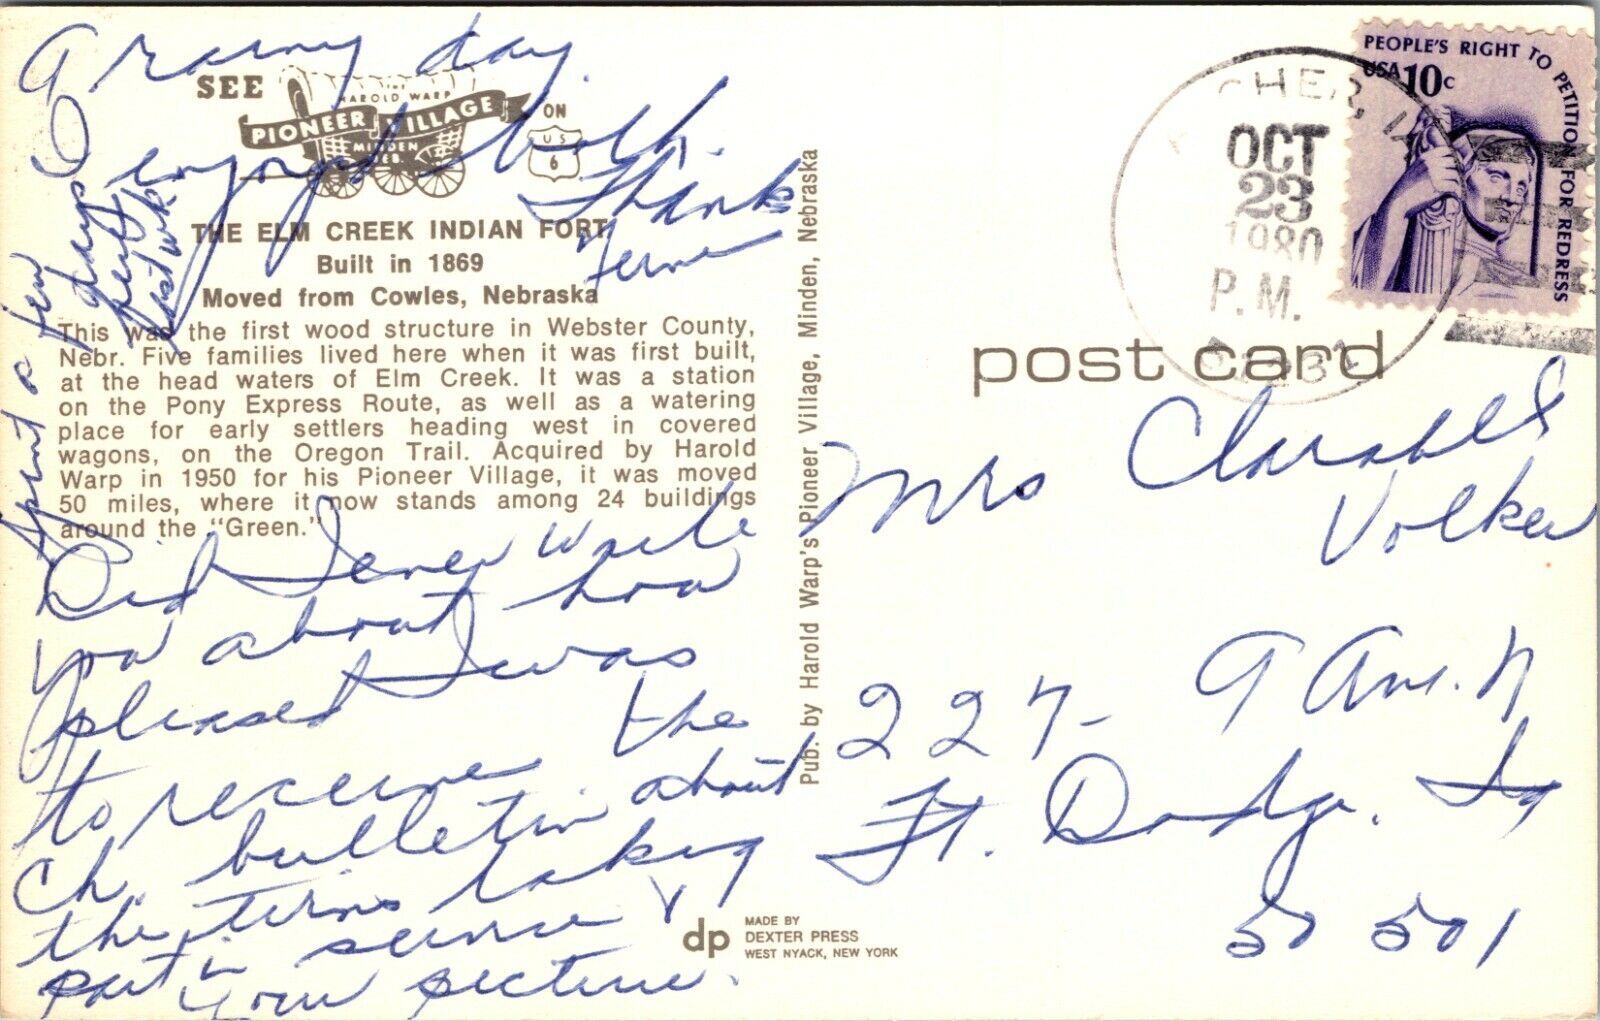 A rainy day.
enjoyed both.
Thanks
Ferne
SEE
THE
HAROLD WARP
PIONEER VILLAGE
MINDEN
NEB.
ON
US
6
THE ELM CREEK INDIAN FORT
Built in 1869
Moved from Cowles, Nebraska
This was the first wood structure in Webster County,
Nebr. Five families lived here when it was first built,
at the head waters of Elm Creek. It was a station
on the Pony Express Route, as well as a watering
place for early settlers heading west in covered
wagons, on the Oregon Trail. Acquired by Harold
Warp in 1950 for his Pioneer Village, it was moved
50 miles, where it now stands among 24 buildings
around the "Green."
Spent a few
days
here
last wk.
Did
you about how
pleased I was
to receive the
Ch. bulletin about
the terms taking
part in service &
your picture.
Pub. by Harold Warp's Pioneer Village, Minden, Nebraska
dp
MADE BY
DEXTER PRESS
WEST NYACK, NEW YORK
OCT
23
1980
P.M.
PEOPLE'S RIGHT TO PETITION FOR REDRESS
USA 10c
post card
Mrs Clarabell
Volker
227- 9 Ave. N
Ft. Dodge. Ia
50501